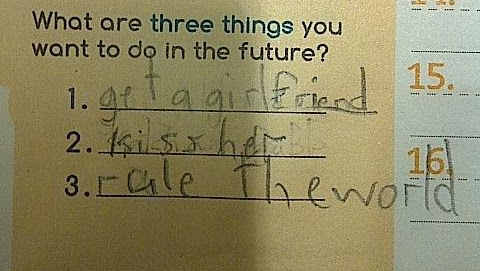 What are three things you
want to do in the future?
1. get a girlfriend
2. kiss her
3. rule the world
15.
16.